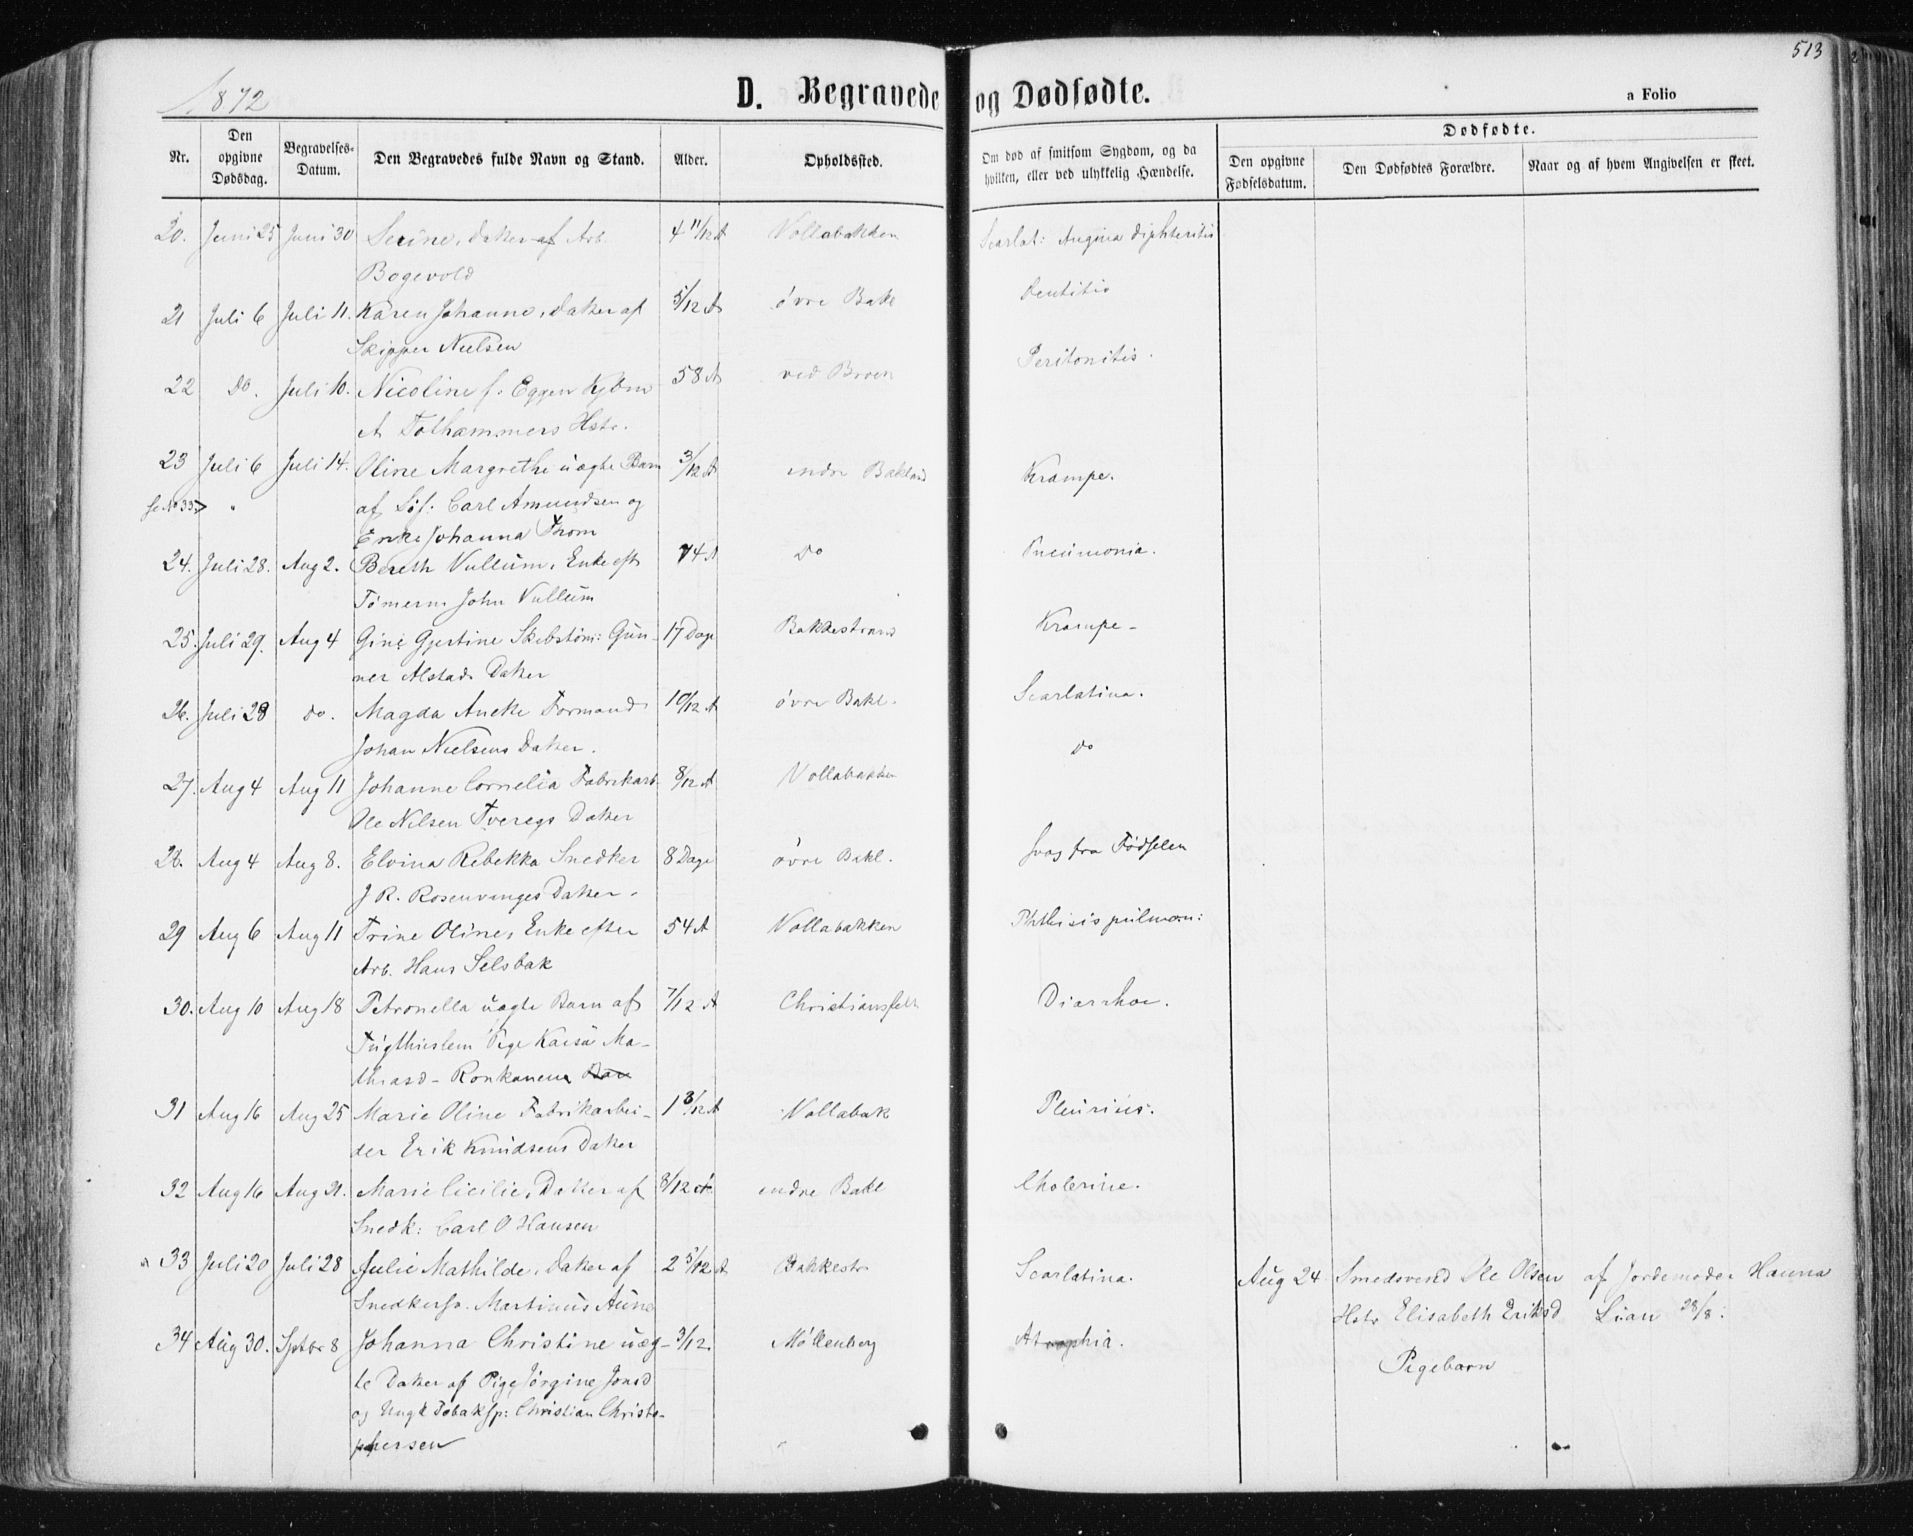 513
1872
D. Begravede og Dødfødte.
a Folio
Nr.
Den opgivne Dødsdag.
Begravelses-Datum.
Den Begravedes fulde Navn og Stand.
Alder.
Opholdssted.
Om død af smitsom Sygdom, og da hvilken, eller ved ulykkelig Hændelse.
Dødfødte.
Den opgivne Fødselsdatum.
Den Dødfødtes Forældre.
Naar og af hvem Angivelsen er skeet.
20. Juni 25 Juni 30 Serine, Datter af Arb. 4 11/12 A Vollabakken Scarlat: Angina diphteritis
Bogevold
21 Juli 6 Juli 11. Karen Johanne, Datter af 5/12 A øvre Bakl Dentitio
Skipper Nielsen
22 Do. Juli 10. Nicoline f: Eggen Kjøbm 58 A ved Broen Peritonitis.
A Folhammers Hstr.
23 Juli 6 Juli 14. Oline Margrethe uægte Barn 3/12 A nedre Bakland Krampe.
se No 33 " af Søf: Carl Amundsen og
Enke Johanna From
24. Juli 28. Aug 2. Bereth Vullum, Enke eft 74 A Do Pneumonia.
Tømerm John Vullum
25. Juli 29. Aug 4 Gine Gjertine Skibstøm: Gun- 17 Dage Bakkestrand Krampe-
ner Alstads Datter
26. Juli 28 do. Magda Aneke Formand 10/12 A øvre Bakl. Scarlatina.
Johan Nielsens Datter.
27. Aug 4 Aug 11 Johanne Cornelia Fabrikarb. 8/12 A Vollabakken Do
Ole Nilsen Tveregs Datter
28. Aug 4 Aug 8. Elvina Rebekka Snedker 8 Dage øvre Bakl. svag fra Fødselen
J R. Rosenvinges Datter.
29 Aug 6 Aug 11 Trine Oline, Enke efter 54 A Vollabakken Phthisis pulmon:
Arb. Hans Selsbak
30. Aug 10 Aug 18 Petronella uægte Barn af 7/12 A Christiansfeldt Diarrhoe.
Tugthuslem Pige Kaisa Ma-
thiasd- Ronkanen
31 Aug 16 Aug 25 Marie Oline Fabrikarbei- 1 3/12 A Vollabak Pleurius.
der Erik Knudsens Datter
32 Aug 16 Aug 21. Marie Cicilie, Datter af 8/12 A nedre Bakl Cholerine.
Snedk: Carl O Hansen
33 Juli 20 Juli 28 Julie Mathilde, Datter af 2 5/12 A Bakkestr Scarlatina. Aug 24 Smedsvend Ole Olsen af Jordemoder Hanna
Snedkersv. Martinus Aune Hstr Elisabeth Eriksd Lian 28/8.
34 Aug 30. Sptbr 8 Johanna Christine uæg- 3/12. Møllenberg Atrophia. Pigebarn
te Datter af Pige Jørgine Jonsd
og Ungk Tobaksp: Christian Christo-
phersen